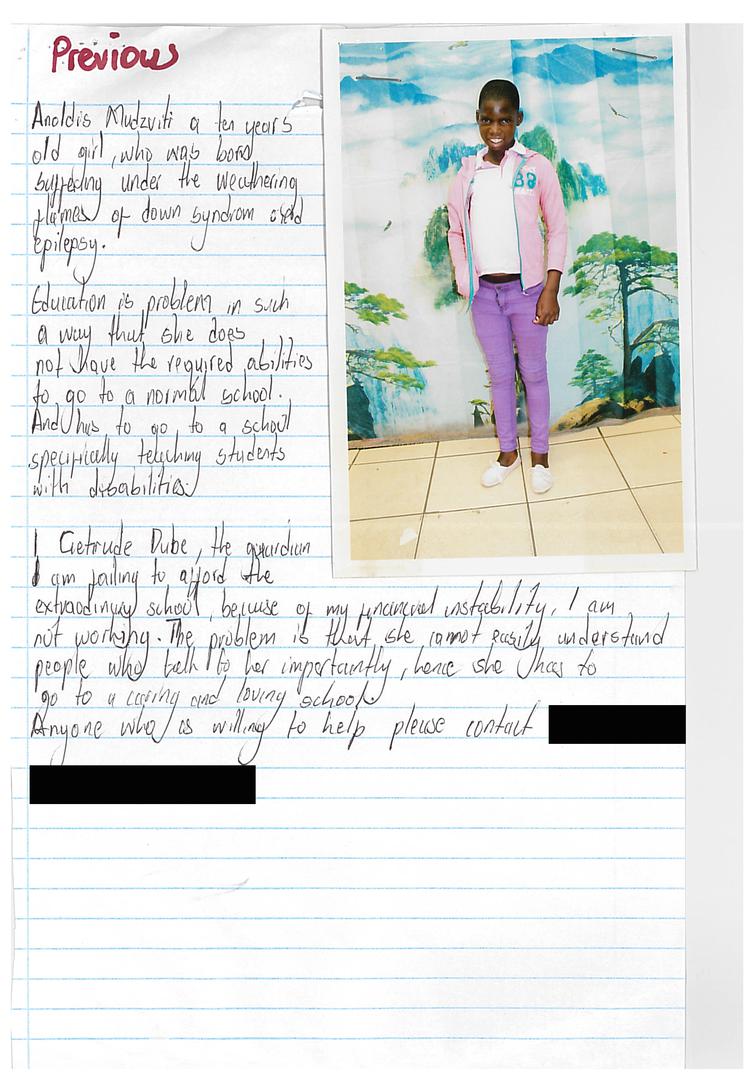 Previous
Anoldis Mudzviti a ten years
old girl, who was born
suffering under the weathering
flames of down syndrom and
epilepsy.
Education is problem in such
a way that she does
not have the required abilities
to go to a normal school.
And has to go to a school
specifically teaching students
with disabilities.
I Getrude Dube, the guardian
I am failing to afford the
extraodinary school, because of my financial instability, I am
not working. The problem is that she cannot easily understand
people who talk to her importantly, hence she has to
go to a caring and loving school.
Anyone who is willing to help please contact
88